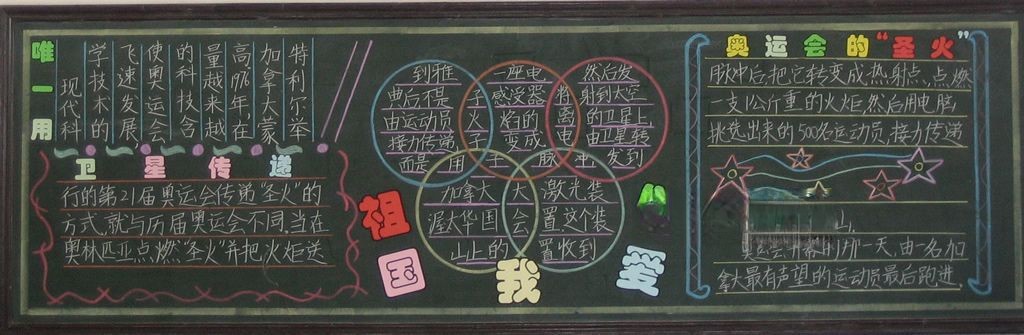 唯一用
卫星传递
现代科
学技术的
飞速发展,
使奥运会
的科技含
量越来越
高.1976年,在
加拿大蒙
特利尔举
行的第21届奥运会传递"圣火"的
方式,就与历届奥运会不同.当在
奥林匹亚点燃"圣火"并把火炬送
到雅 一座电 然后发
典后不是 子 感受器 将 射到太空
由运动员 火 焰的 离 的卫星上,
接力传递, 子 变成 电 由卫星转
而是 用 子 脉 冲 发到
加拿大 大 激光装
渥太华国 会 置这个装
山上的 置收到
祖国我爱
奥运会的"圣火"
脉冲后把它转变成热射点.点燃
一支1公斤重的火炬,然后用电脑
挑选出来的500名运动员,接力传递
山.
奥运会开幕的那一天,由一名加
拿大最有声望的运动员最后跑进.